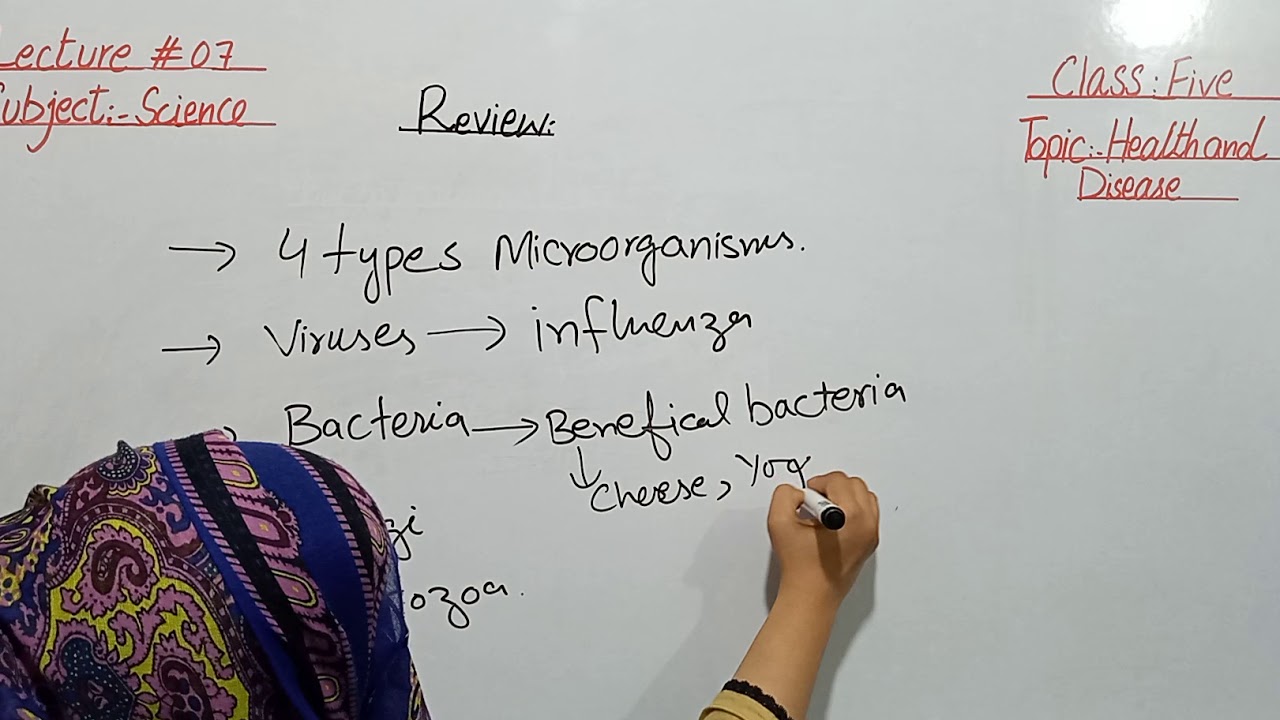 Lecture #07
Subject:-Science
Class: Five
Topic:-Health and
Disease
Review:
→ 4 types Microorganisms.
→ Viruses → influenza
Bacteria → Benefical bacteria
↓ Cheese, Yog
gi
ozoa.